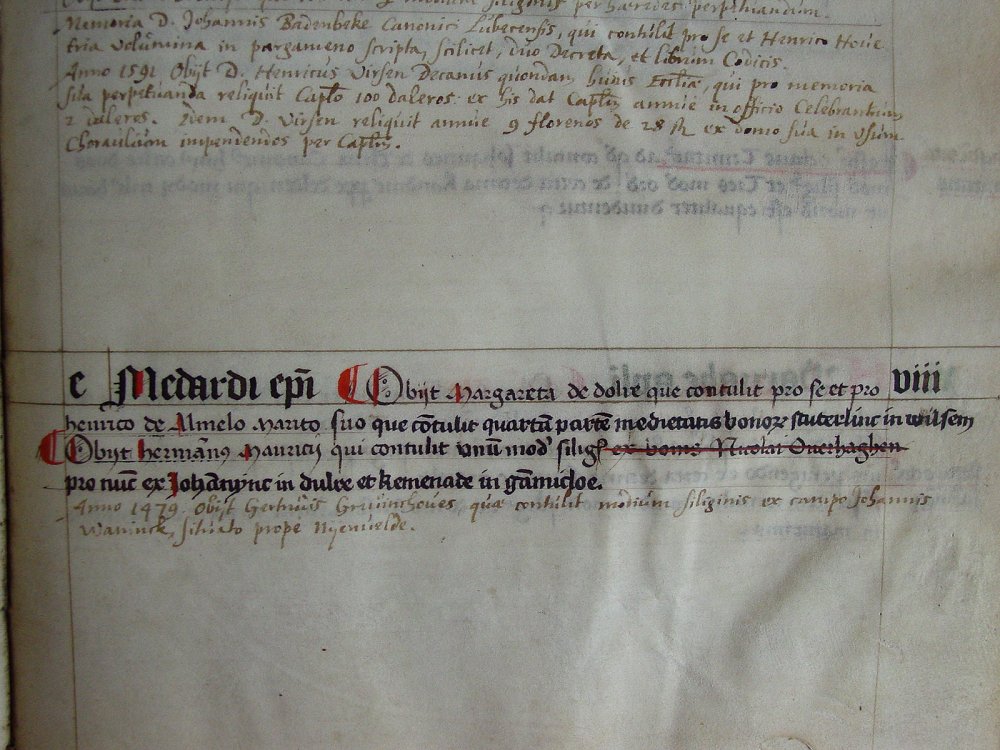 modium siliginis per haredes perpetuandum.
Memoria D. Johannis Badenbeke Canonici Lubecensis, qui contulit pro se et Henrico Hove
tria volumina in pargameno scripta, scilicet, duo Decreta, et librum Codicis.
Anno 1591 Obijt D. Henricus Virsen Decanus quondam huius Eccliae, qui pro memoria
sua perpetuanda reliquit Caplo 100 daleros: ex his dat Caplum annue in officio Celebrantium
2 daleros. Idem D. Virsen reliquit annue 9 florenos de 28 ex domo sua in usum
Choraulium impendendos per Caplum.
e Medardi epi Obijt Margareta de dolre que contulit pro se et pro viii
henrico de Almelo Marito suo que cotulit quarta parte medietatis bonor stuterlinc in wilsem
Obijt herman9 Mauricij qui contulit vnu mod silig ex domo Nicolai Ouerhaghen
pro nuc ex Johanync in dulre et kemenade in
Anno 1479 Obijt Gertruis quae contulit modium siliginis ex campo Johannis
Waninck, situato prope Nyenvelde.